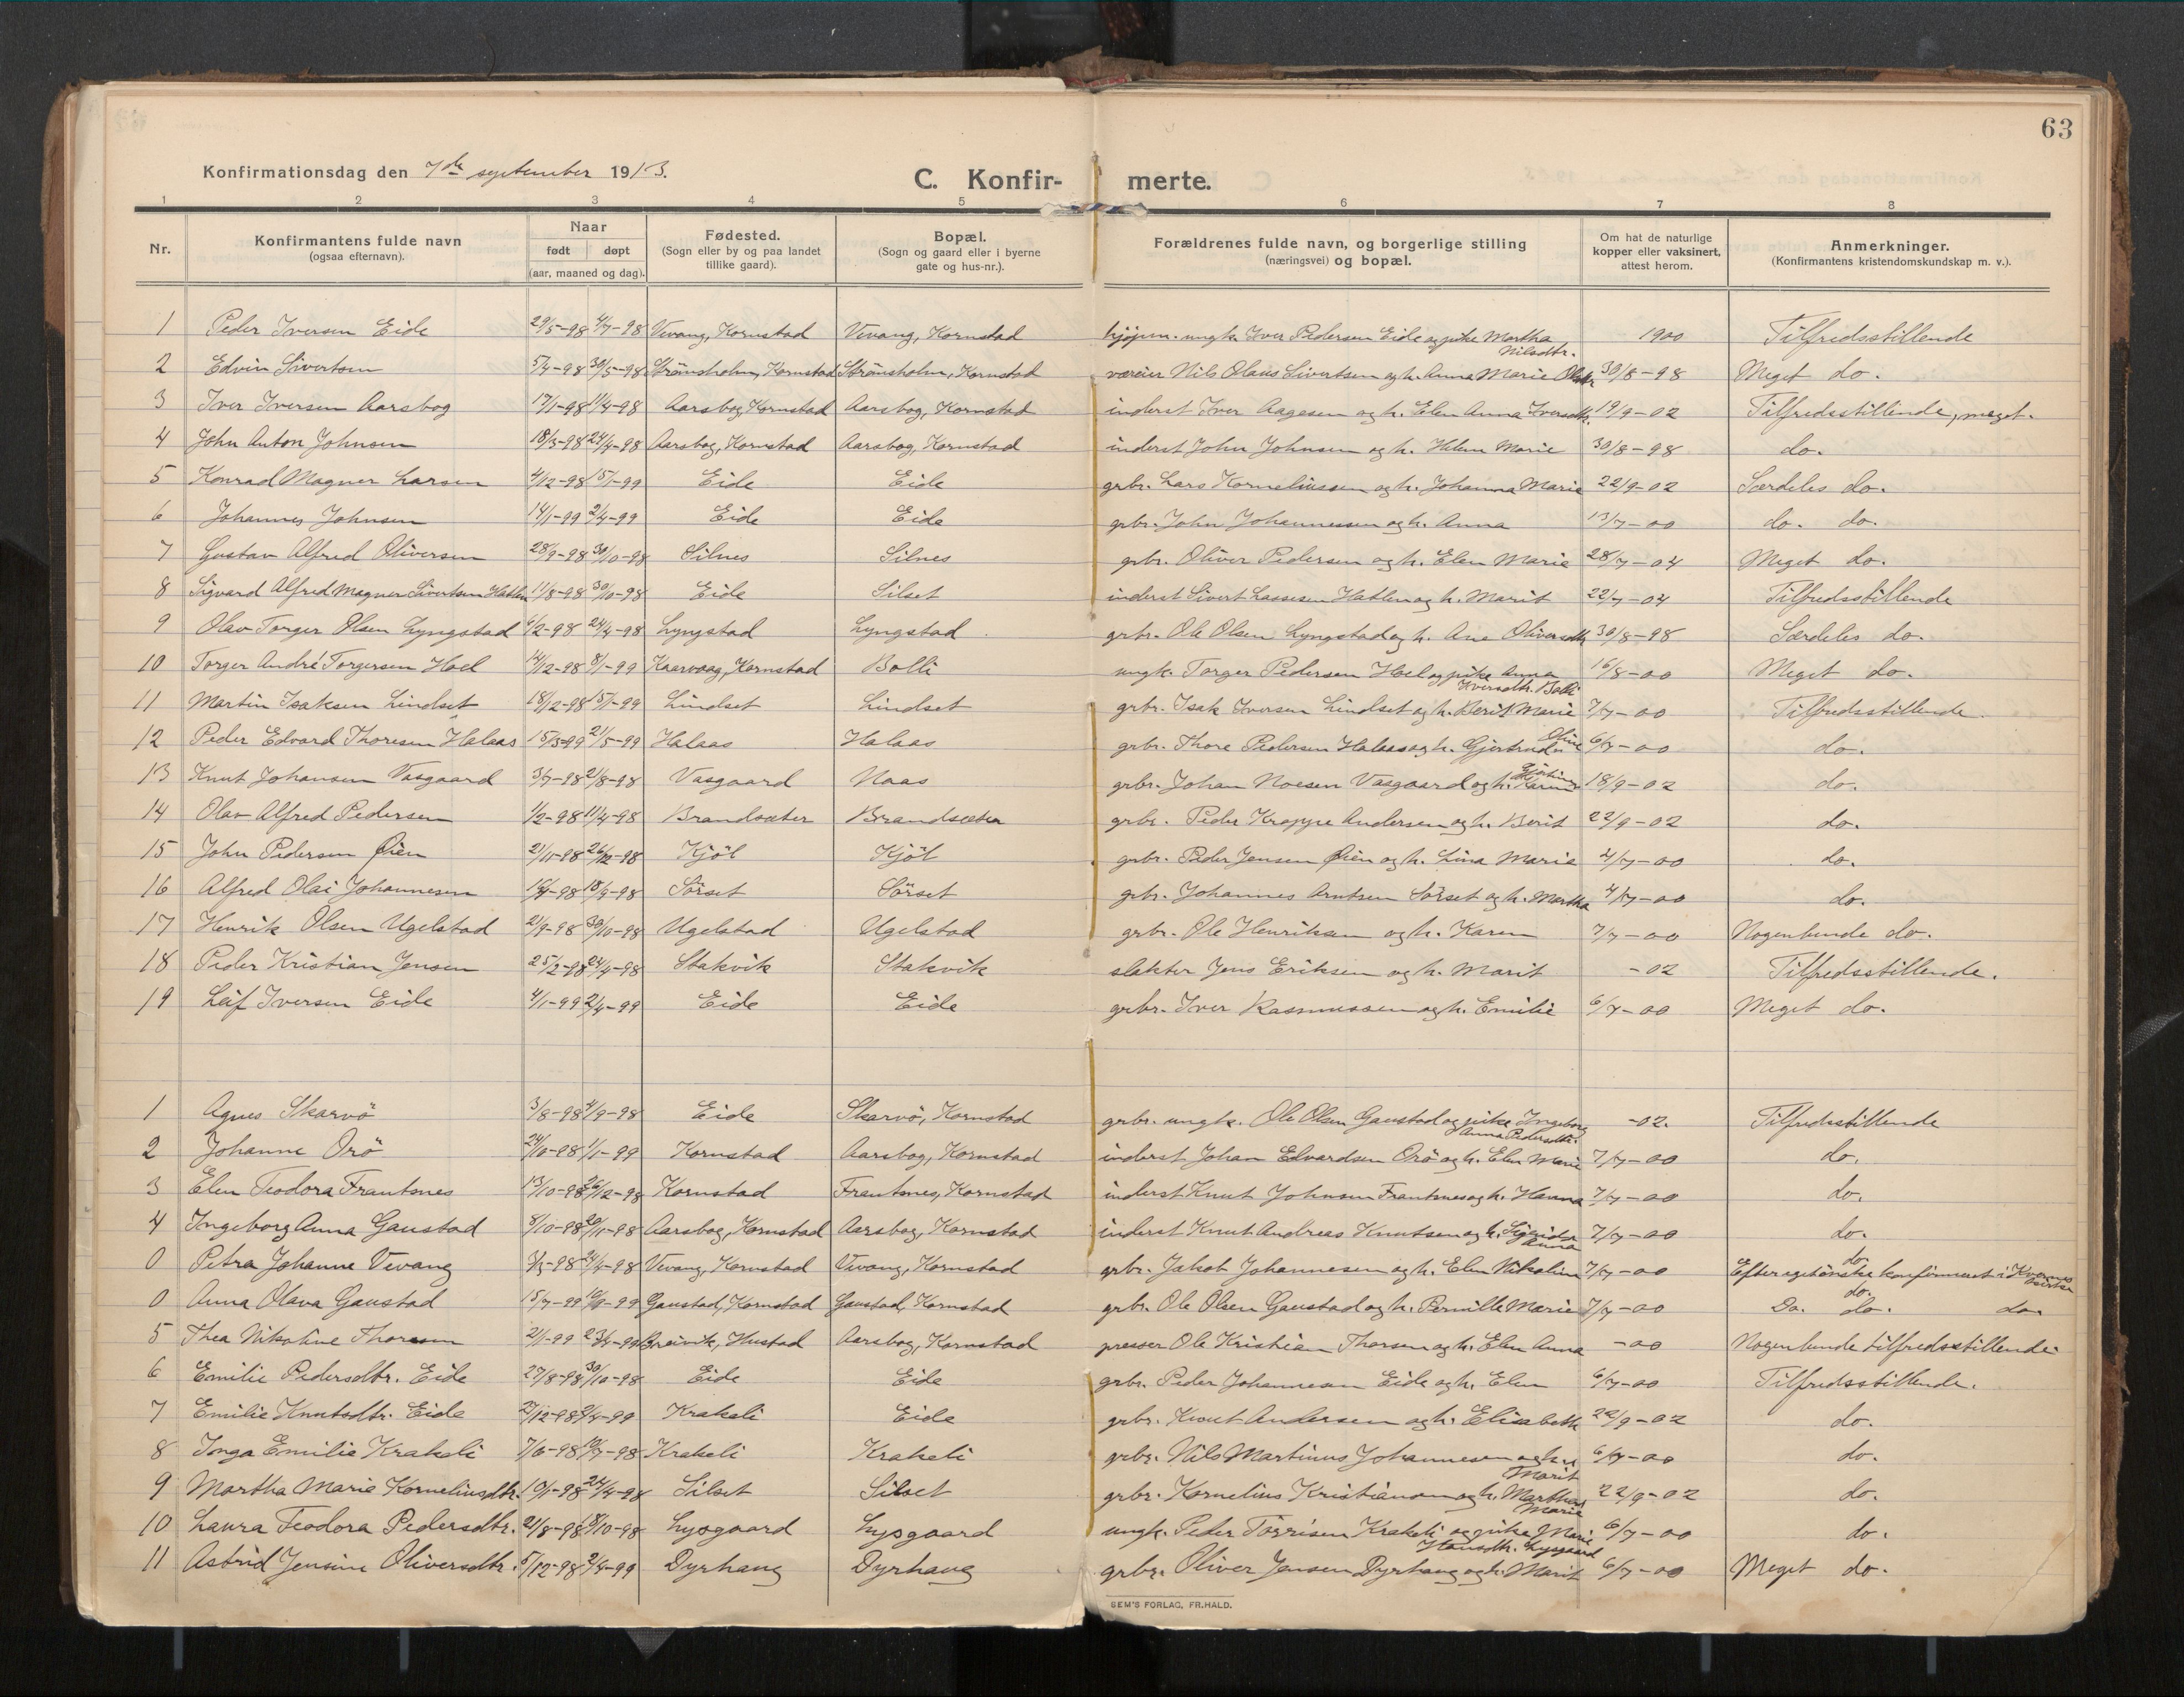 63
Konfirmationsdag den 7de september 1913.
C. Konfir- merte.
1 2 3 4 5 6 7 8
Nr. Konfirmantens fulde navn (ogsaa efternavn). Naar født døpt (aar, maaned og dag). Fødested. (Sogn eller by og paa landet tillike gaard). Bopæl. (Sogn og gaard eller i byerne gate og hus-nr.). Forældrenes fulde navn, og borgerlige stilling (næringsvei) og bopæl. Om hat de naturlige kopper eller vaksinert, attest herom. Anmerkninger. (Konfirmantens kristendomskundskap m. v.).
1 Peder Iversen Eide 29/5-98 4/7-98 Vevang, Kornstad Vevang, Kornstad ungk. Iver Pedersen Eide og pike Martha Nilsdtr. 1900 Tilfredsstillende
2 Edvin Sivertsen 5/4-98 30/5-98 Strömsholm, Kornstad Strömsholm, Kornstad væreier Nils Olaus Sivertsen og h. Anna Marie Olsdtr 30/8-98 Meget do.
3 Iver Iversen Aarsbog 17/1-98 11/4-98 Aarsbog, Kornstad Aarsbog, Kornstad inderst Iver Aagesen og h. Elen Anna Iversdtr. 19/9-02 Tilfredsstillende, meget.
4 John Anton Johnsen 18/3-98 24/4-98 Aarsbog, Kornstad Aarsbog, Kornstad inderst John Johnsen og h. Marie 30/8-98 do.
5 Konrad Magner Larsen 4/12-98 15/1-99 Eide Eide grbr. Lars Korneliussen og h. Johanna Marie 22/9-02 Særdeles do.
6 Johannes Johnsen 14/1-99 2/4-99 Eide Eide grbr. John Johannessen og h. Anna 13/7-00 do. do.
7 Gustav Alfred Oliversen 28/9-98 30/10-98 Silnes Silnes grbr. Oliver Pedersen og h. Elen Marie 28/7-04 Meget do.
8 Sigvard Alfred Magner Sivertsen Hatlen 11/8-98 30/10-98 Eide Silset inderst Sivert Lassesen Hatlen og h. Marit 22/7-04 Tilfredsstillende
9 Olav Torger Olsen Lyngstad 6/2-98 24/4-98 Lyngstad Lyngstad grbr. Ole Olsen Lyngstad og h. Ane Oliversdtr 30/8-98 Særdeles do.
10 Torger André Torgersen Hoel 14/12-98 8/1-99 Kaarvaag, Kornstad Bolli ungk. Torger Pedersen Hoel og pike Anna Iversdtr. Bolli 16/8-00 Meget do.
11 Martin Isaksen Lindset 18/12-98 15/1-99 Lindset Lindset grbr. Isak Iversen Lindset og h. Berit Marie 7/7-00 Tilfredsstillende.
12 Peder Edvard Thoresen Halaas 15/3-99 21/5-99 Halaas Halaas grbr. Thore Pedersen Halaas og h. Gjertrude Oline 6/7-00 do.
13 Knut Johansen Vasgaard 3/7-98 21/8-98 Vasgaard Naas grbr. Johan Noesen Vasgaard og h. Karen 18/9-02 do.
14 Olav Alfred Pedersen 1/2-98 11/4-98 Brandsæter Brandsæter grbr. Peder Kroppe Andersen og h. Berit 22/9-02 do.
15 John Pedersen Øien 21/11-98 26/12-98 Kjöl Kjöl grbr. Peder Jensen Øien og h. Lina Marie 4/7-00 do.
16 Alfred Olai Johannesen 18/9-98 Sörset Sörset grbr. Johannes Arntsen Sörset og h. Martha 4/7-00 do.
17 Henrik Olsen Ugelstad 21/9-98 30/10-98 Ugelstad Ugelstad grbr. Ole Henriksen og h. Karen 7/7-00 Nogenlunde do.
18 Peder Kristian Jensen 25/2-98 24/4-98 Stakvik Stakvik slakter Jens Eriksen og h. Marit -02 Tilfredsstillende.
19 Leif Iversen Eide 4/1-99 2/4-99 Eide Eide grbr. Iver Rasmussen og h. Emilie 6/7-00 Meget do.
1 Agnes Skarvö 3/8-98 4/9-98 Eide Skarvö, Kornstad grbr. ungk. Ole Olsen Gaustad og pike Ingeborg Anna Pedersdtr. -02. Tilfredsstillende
2 Johanne Orö 24/10-98 1/1-99 Kornstad Aarsbog, Kornstad inderst Johan Edvardsen Orö og h. Elen Marie 7/7-00 do.
3 Elen Teodora Frantsnes 13/10-98 26/12-98 Kornstad Frantsnes, Kornstad inderst Knut Johnsen Frantsnes og h. Hanna 7/7-00 do.
4 Ingeborg Anna Gaustad 8/10-98 20/11-98 Aarsbog, Kornstad Aarsbog, Kornstad inderst Knut Andreas Knutsen og h. Anna 7/7-00 do.
0 Petra Johanne Vevang 3/3-98 24/4-98 Vevang, Kornstad Vevang, Kornstad grbr. Jakob Johannesen og h. Elen Nikoline 7/7-00 do. Efter eget önske konfirmeret i Kvernes kirke
0 Anna Olava Gaustad 15/7-99 10/9-99 Gaustad, Kornstad Gaustad, Kornstad grbr. Ole Olsen Gaustad og h. Pernille Marie 7/7-00 do. Do. do. do.
5 Thea Nikoline Thoresen 2/1-99 23/4-99 Breivik, Hustad Aarsbog, Kornstad presser Ole Kristian Thorsen og h. Elen Anna -00 Nogenlunde tilfredsstillende.
6 Emilie Pedersdtr. Eide 27/8-98 30/10-98 Eide Eide grbr. Peder Johannesen Eide og h. Elen 6/7-00 Tilfredsstillende.
7 Emilie Knutsdtr. Eide 27/12-98 2/4-99 Krakeli Eide grbr. Knut Andersen og h. Elisabeth 22/9-02 do.
8 Inga Emilie Krakeli 7/6-98 10/7-98 Krakeli Krakeli grbr. Nils Martinus Johannesen og h. Marit 6/7-00 do.
9 Martha Marie Korneliusdtr. 10/1-98 24/4-98 Silset Silset grbr. Kornelius Kristiansen og h. Martha Marie 22/9-02 do.
10 Laura Teodora Pedersdtr. 21/8-98 /10-98 Lysgaard Lysgaard ungk. Peder Törrisen Krakeli og pike Marie Hansdtr. Lysgaard 6/7-00 do.
11 Astrid Jensine Oliversdtr. 5/12-98 2/4-99 Dyrhaug Dyrhaug grbr. Oliver Jensen Dyrhaug og h. Marit 6/7-00 Meget do.
SEM'S FORLAG, FR.HALD.